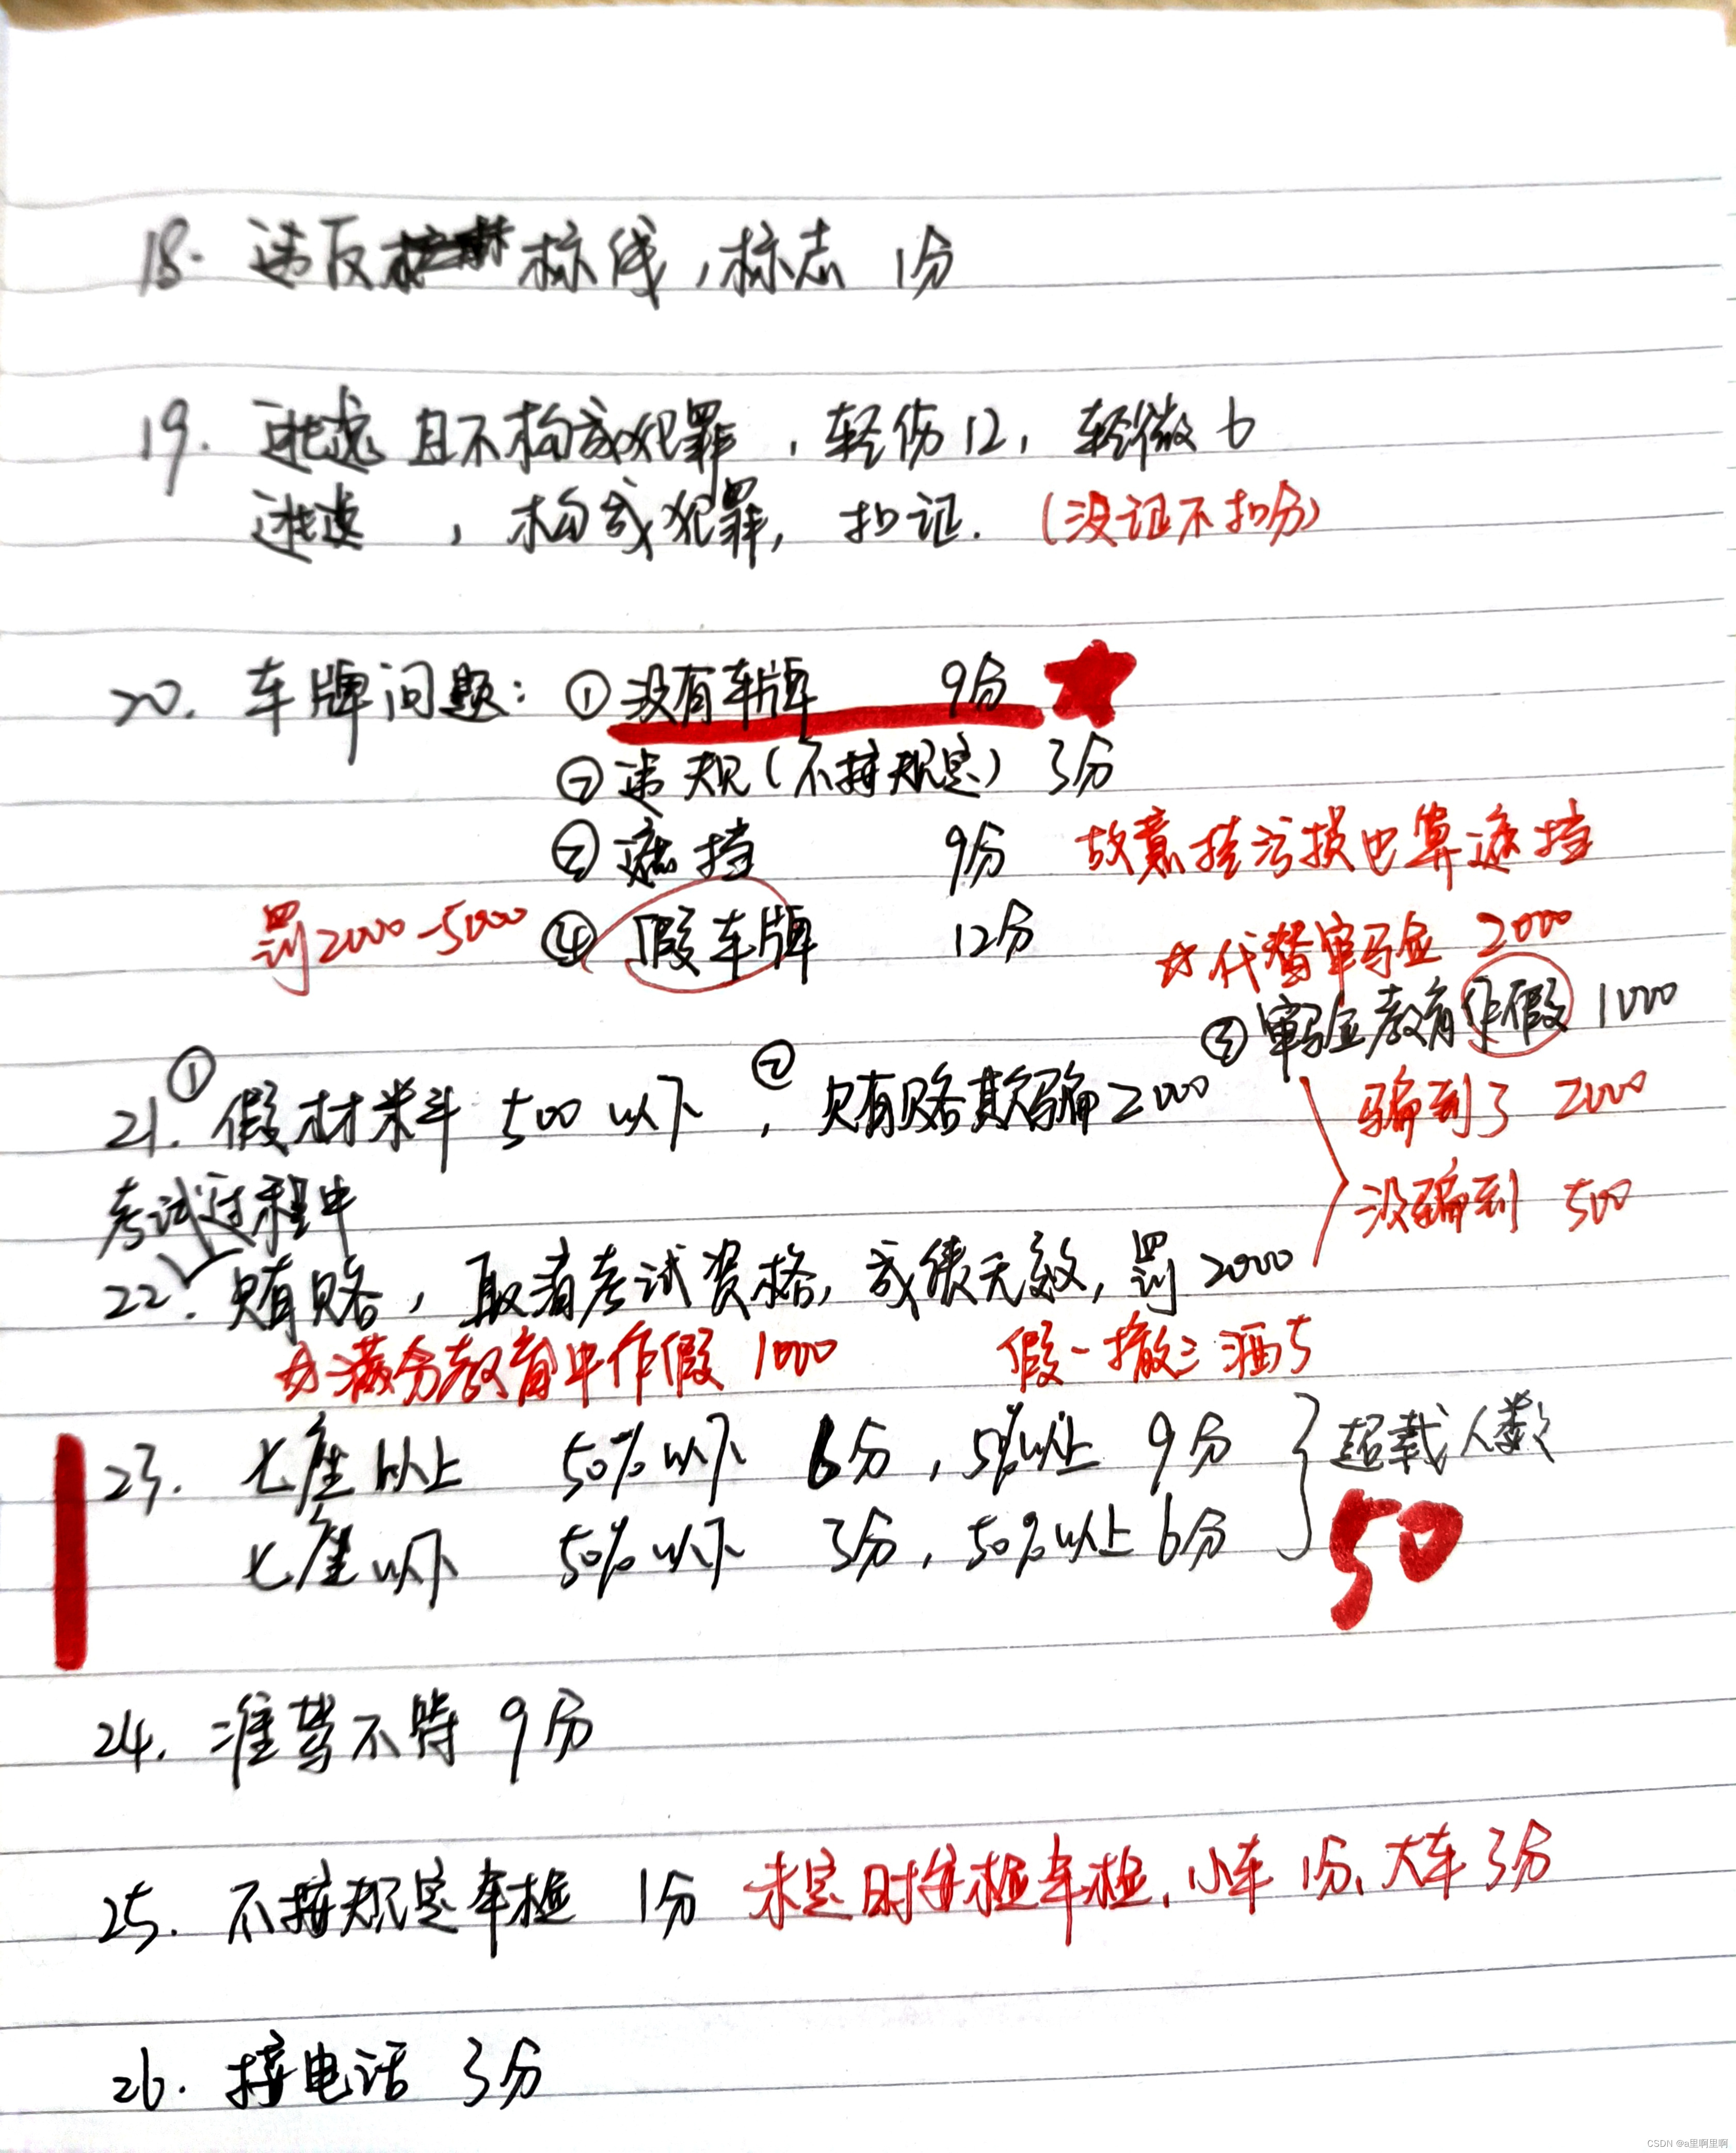 18. 违反 标线，标志 1分
19. 逃逸 且不构成犯罪，轻伤12，轻微6
逃逸，构成犯罪，扣证. (没证不扣分)
20. 车牌问题：① 没有车牌 9分
② 违规(不按规定) 3分
③ 遮挡 9分 故意 污损也算遮挡
罚2000-5000 ④ 假车牌 12分
☆代替审验 2000
③ 审验教育作假 1000
21. ① 假材料 500以下，② 贿赂欺骗2000
骗到了 2000
没骗到 500
考试过程中
22. 贿赂，取消考试资格，成绩无效，罚2000
☆满分教育中作假 1000 假一撤三酒5
23. 七座以上 50%以下 6分，5%以上 9分
超载人数
七座以下 50%以下 3分，50%以上 6分
50
24. 准驾不符 9分
25. 不按规定车检 1分 未定时 检车检，小车1分、大车3分
26. 接电话 3分
CSDN @a里啊里啊